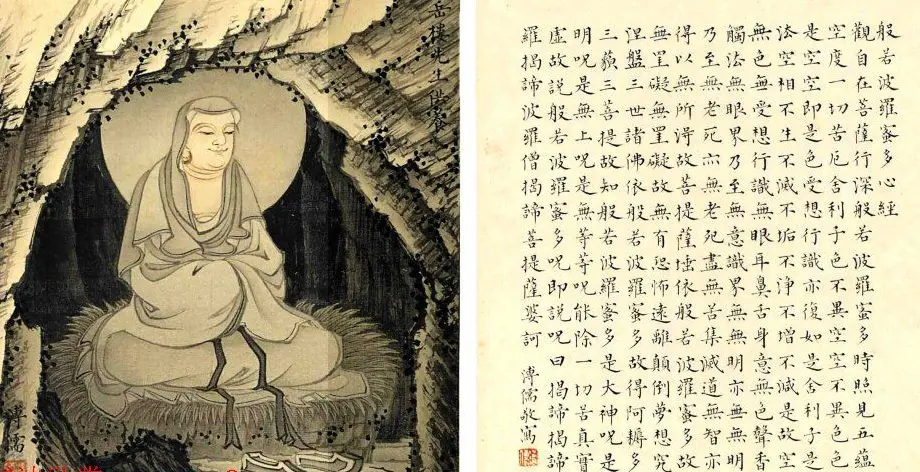 岳樓先生供養
溥儒
般若波羅蜜多心經
觀自在菩薩行深般若波羅蜜多時照見五蘊
空度一切苦厄舍利子色不異空空不異色色
是空空即是色受想行識亦復如是舍利子是
法空相不生不滅不垢不淨不增不減是故空
無色無受想行識無眼耳鼻舌身意無色聲香
觸法無眼界乃至無意識界無無明亦無無明
乃至無老死亦無老死盡無苦集滅道無智亦
得以無所得故菩提薩埵依般若波羅蜜多故
無罣礙無罣礙故無有恐怖遠離顛倒夢想究
涅盤三世諸佛依般若波羅蜜多故得阿耨多
三藐三菩提故知般若波羅蜜多是大神呪是
明呪是無上呪是無等等呪能除一切苦真實
虛故説般若波羅蜜多呪即説呪曰揭諦揭諦
羅揭諦波羅僧揭諦菩提薩婆訶
溥儒敬寫